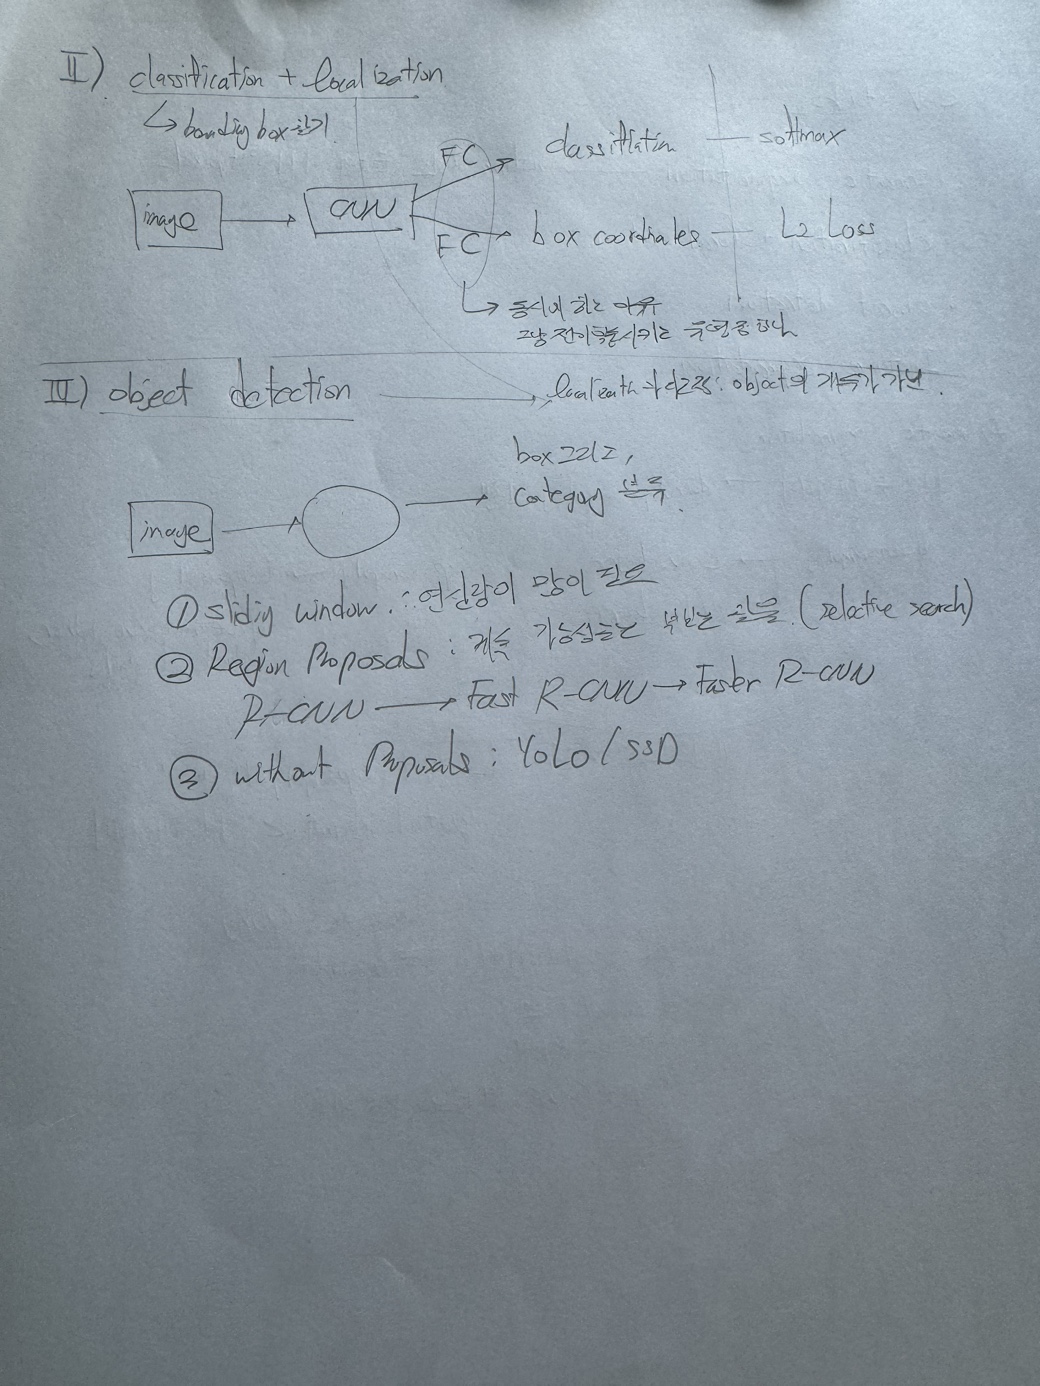 II) classification + localization
↳ bounding box 찾기
FC
classifiation — softmax
image → CNN
FC
box coordiates — L2 Loss
↳ 동시에 하는 이유
그냥 전이학습시키는
III) object detection → 차이점: object의 개수가 가변.
box 그리고,
image →
category 분류.
① slidig window. ∴ 연산량이 많이 필요
② Region Proposals : 가능성 (selective search)
R-CNN → Fast R-CNN → Faster R-CNN
③ without Proposals : YOLO / SSD